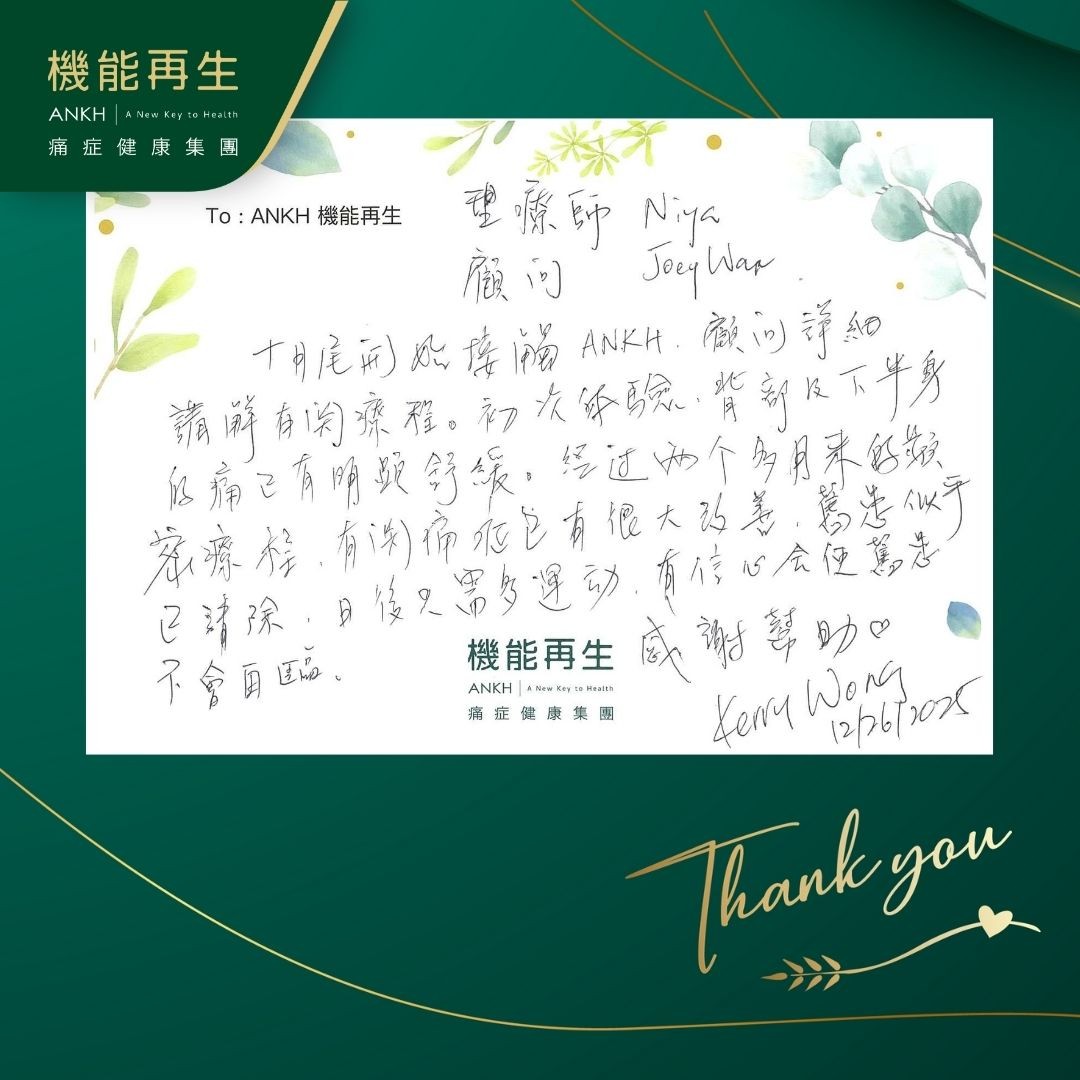 機能再生
ANKH | A New Key to Health
痛症健康集團
To : ANKH 機能再生
理療師 Niya
顧问 Joey Wan
十月尾開始接觸 ANKH. 顧问詳細
講解有関療程。初次体驗, 背部及下半身
的痛已有明顯舒緩。经过两个多月来的頻
密療程, 有関痛症已有很大改善, 舊患似乎
已清除, 日後只需多運动, 有信心会使舊患
不會再臨。
感謝幫助♡
Kerry Wong
12/26/2025
機能再生
ANKH | A New Key to Health
痛症健康集團
Thank you